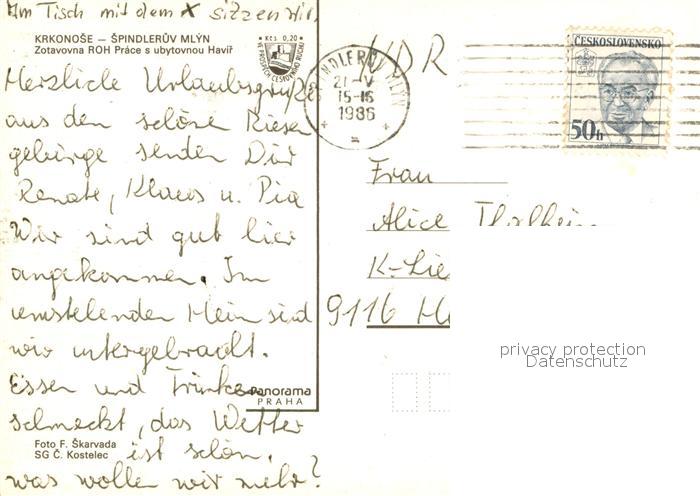 Am Tisch mit dem X sitzen wir.
KRKONOŠE – ŠPINDLERŮV MLÝN
Zotavovna ROH Práce s ubytovnou Havíř
Kčs 0,20
Herzliche Urlaubsgrüße
aus den schöne Riesen
gebirge senden Dir
Renate, Klaus u. Pia
Wir sind gut hier
angekommen. Im
umstehenden Heim sind
wir untergebracht.
Essen und Trinken
schmeckt, das Wetter
ist schön.
was wollen wir mehr?
Panorama
PRAHA
Foto F. Škarvada
SG Č. Kostelec
ŠPINDLERŮV MLÝN
21-V
15-16
1986
DDR
ČESKOSLOVENSKO
50h
Frau
Alice
K-Lie
9116
privacy protection
Datenschutz